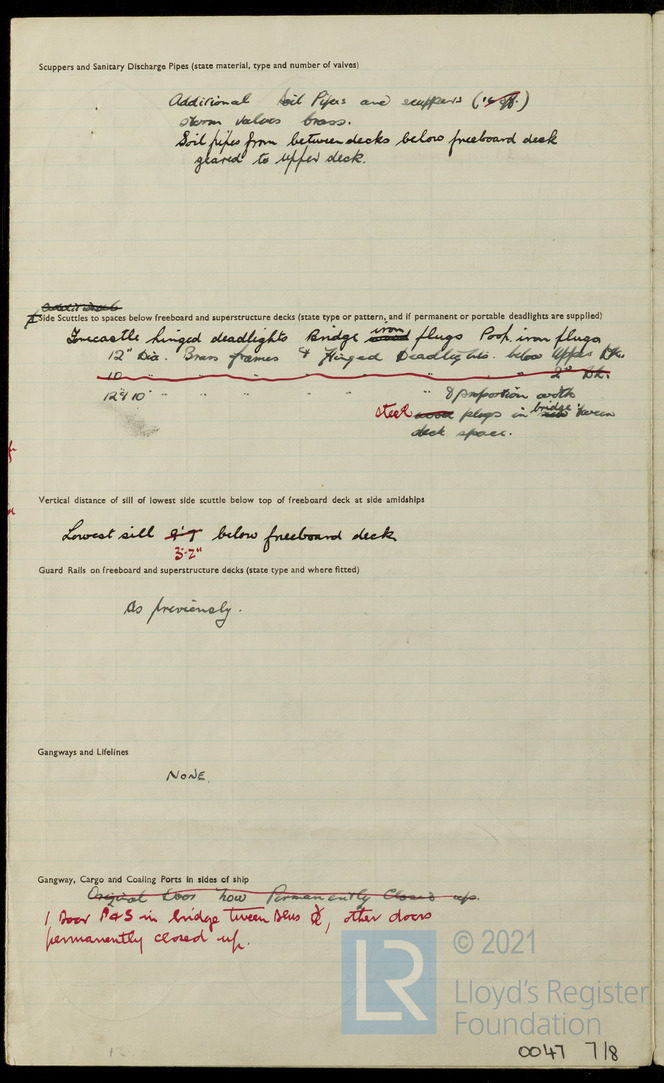 Scuppers and Sanitary Discharge Pipes (state material, type and number of valves)
Additional Soil Pipes and scuppers (15 off.)
storm valves brass.
Soil pipes from between decks below freeboard deck
geared to upper deck.
Additional
Side Scuttles to spaces below freeboard and superstructure decks (state type or pattern, and if permanent or portable deadlights are supplied)
Forecastle hinged deadlights Bridge wood iron plugs Poop iron plugs
12" Dia. Brass frames & Hinged Deadlights. below Upper Dk.
10 " " " " 2nd Dk.
12" & 10" " " " " " & proportion with
steel wood plugs in bridge tween
deck space.
Vertical distance of sill of lowest side scuttle below top of freeboard deck at side amidships
Lowest sill below freeboard deck
3'-2"
Guard Rails on freeboard and superstructure decks (state type and where fitted)
As previously.
Gangways and Lifelines
NONE.
Gangway, Cargo and Coaling Ports in sides of ship
Original Doors now Permanently Closed up.
1 Door P & S in bridge tween , other doors
permanently closed up.
LR
© 2021
Lloyd's Register
Foundation
0047 7/8